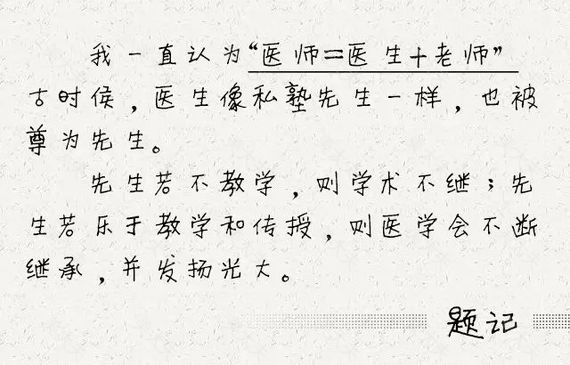 我一直认为“医师=医生+老师”
古时侯，医生像私塾先生一样，也被
尊为先生。
先生若不教学，则学术不继；先
生若乐于教学和传授，则医学会不断
继承，并发扬光大。
题记